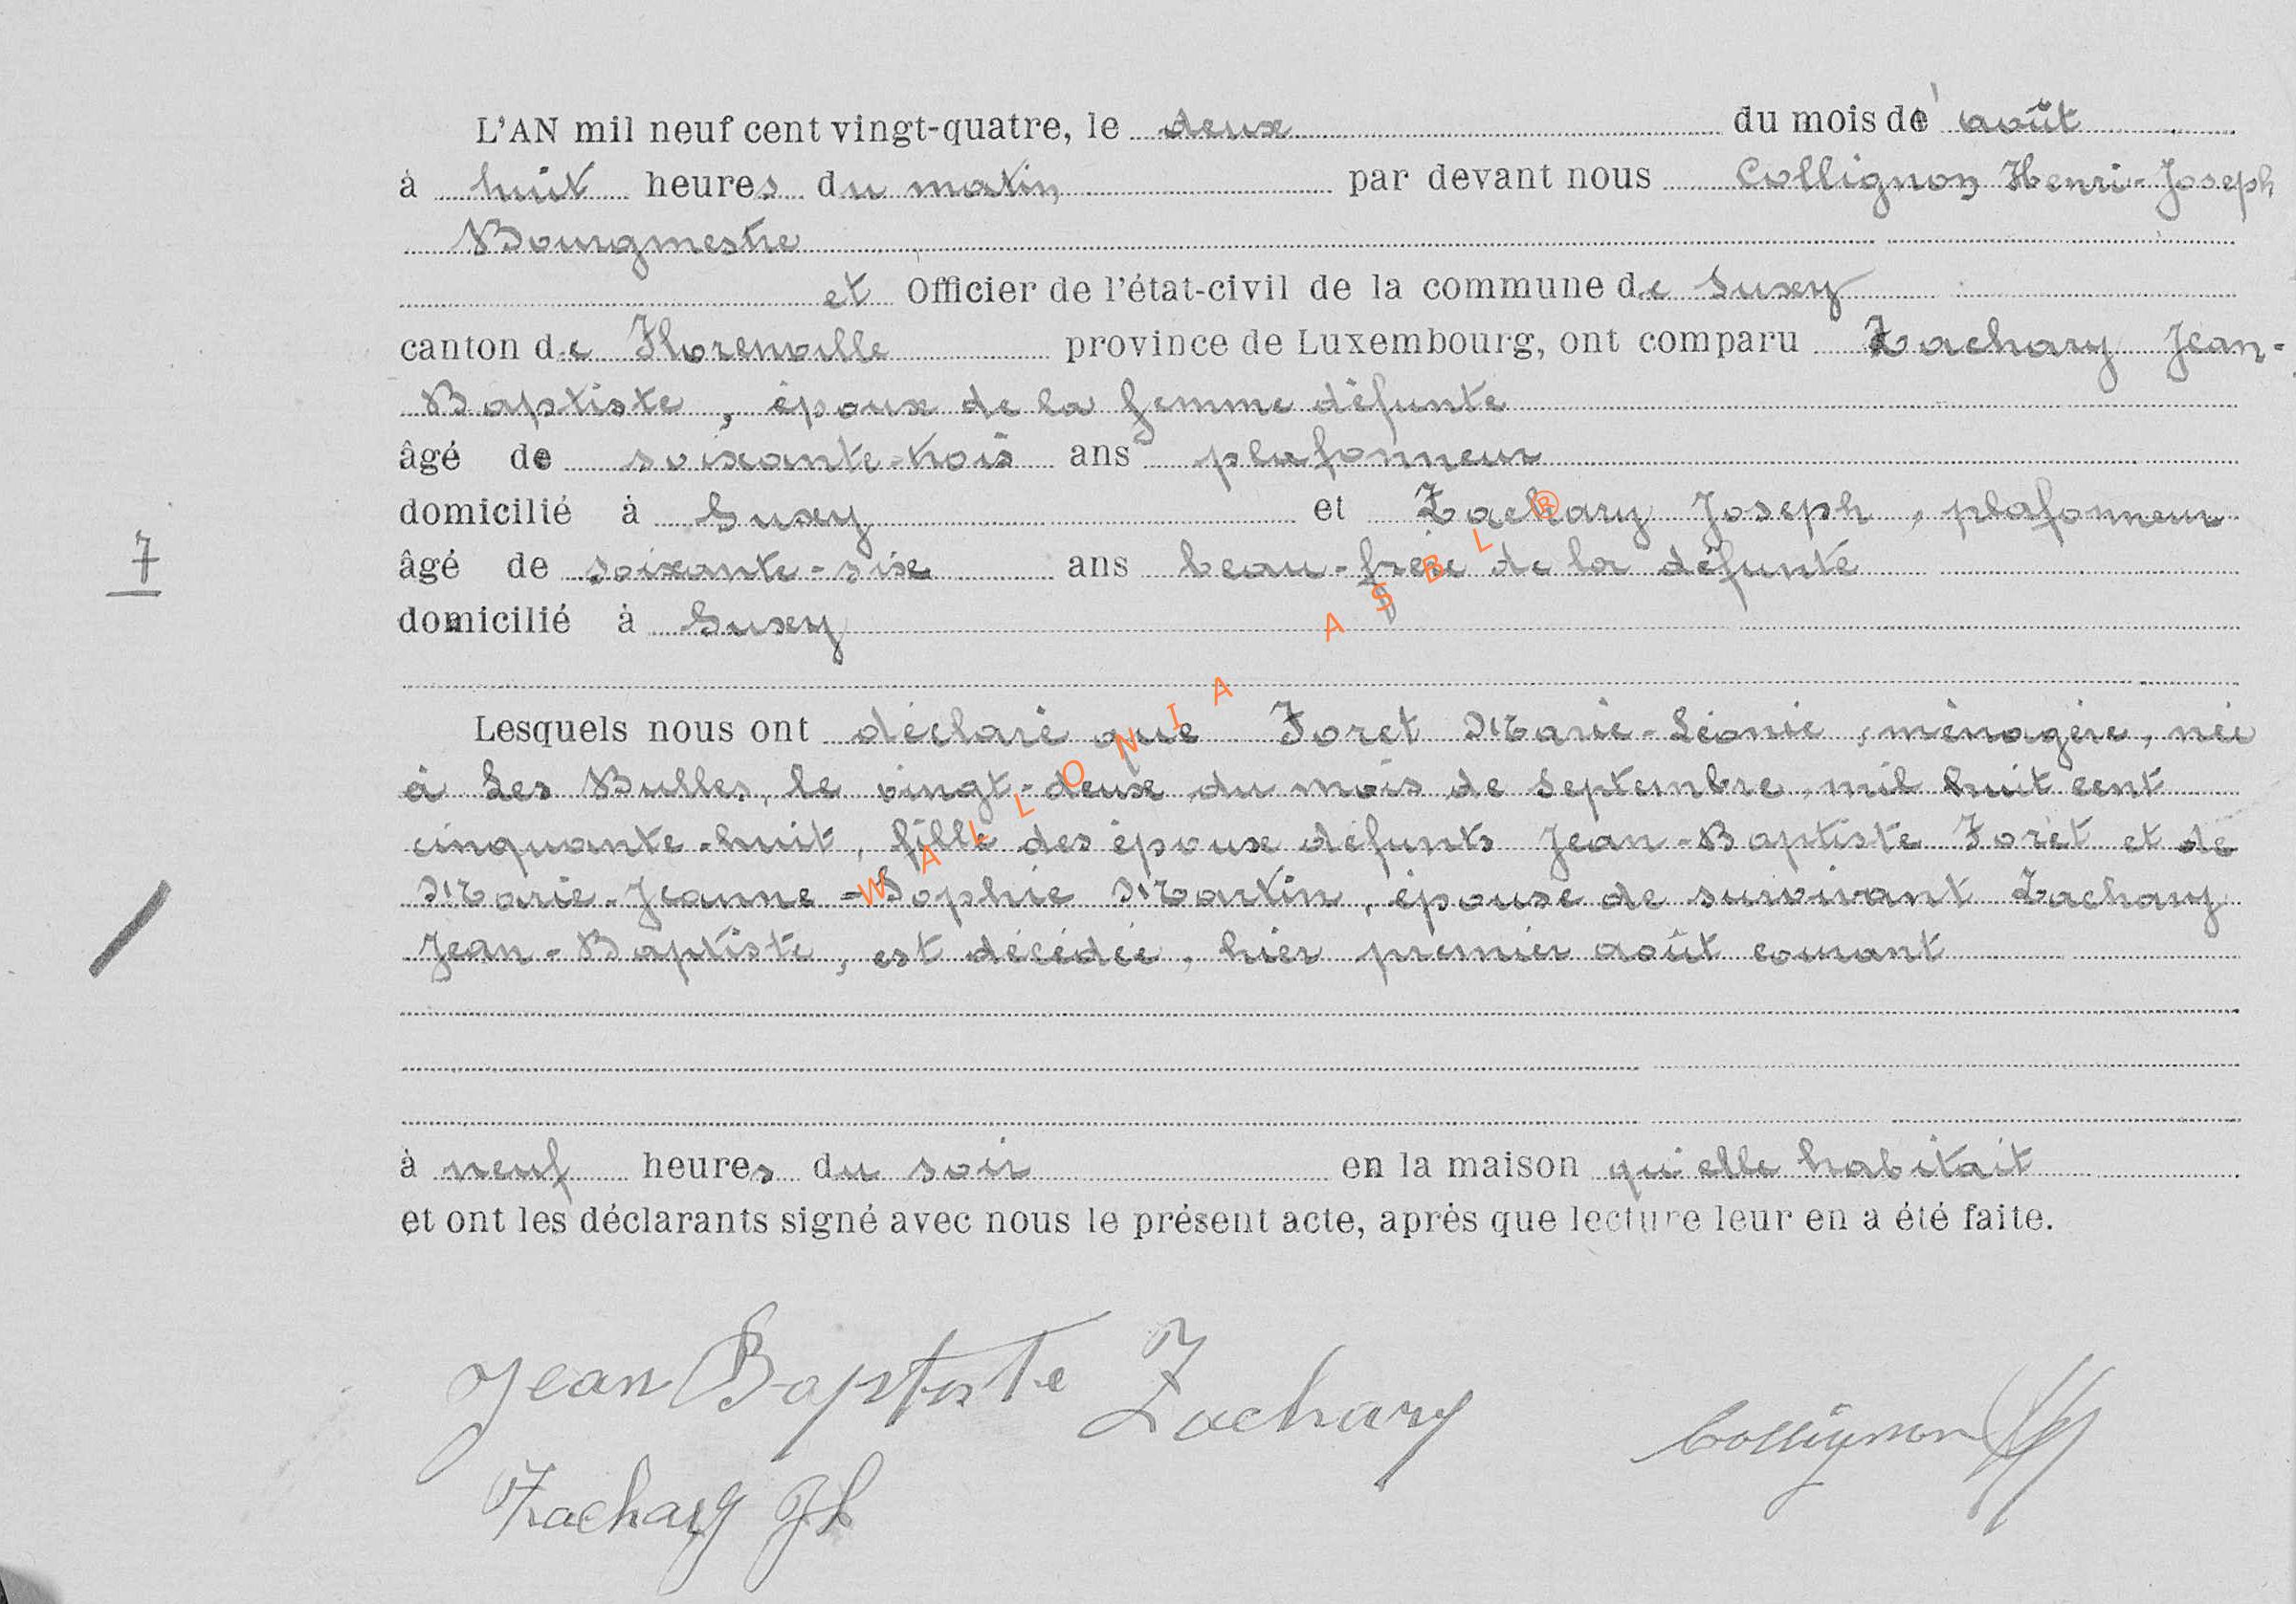 L'AN mil neuf cent vingt-quatre, le deux du mois de août
à huit heures du matin, par devant nous Collignon Henri-Joseph
Bourgmestre
et Officier de l'état-civil de la commune de Suxy
canton de Florenville province de Luxembourg, ont comparu Zachary Jean-
Baptiste, époux de la femme défunte
âgé de soixante-trois ans plafonneur
domicilié à Suxy et Zachary Joseph, plafonneur
7
âgé de soixante-six ans beau-frère de la défunte
domicilié à Suxy
Lesquels nous ont déclaré que Foret Marie-Léonie, ménagère, née
à Les Bulles, le vingt-deux du mois de Septembre, mil huit cent
cinquante-huit, fille des époux défunts Jean-Baptiste Foret et de
Marie-Jeanne-Sophie Martin, épouse de survivant Zachary
Jean-Baptiste, est décédée, hier premier août courant
à neuf heures du soir en la maison qu'elle habitait
et ont les déclarants signé avec nous le présent acte, après que lecture leur en a été faite.
Jean Baptiste Zachary
Collignon
Zachary Jh
WALLONIA ASBL ®